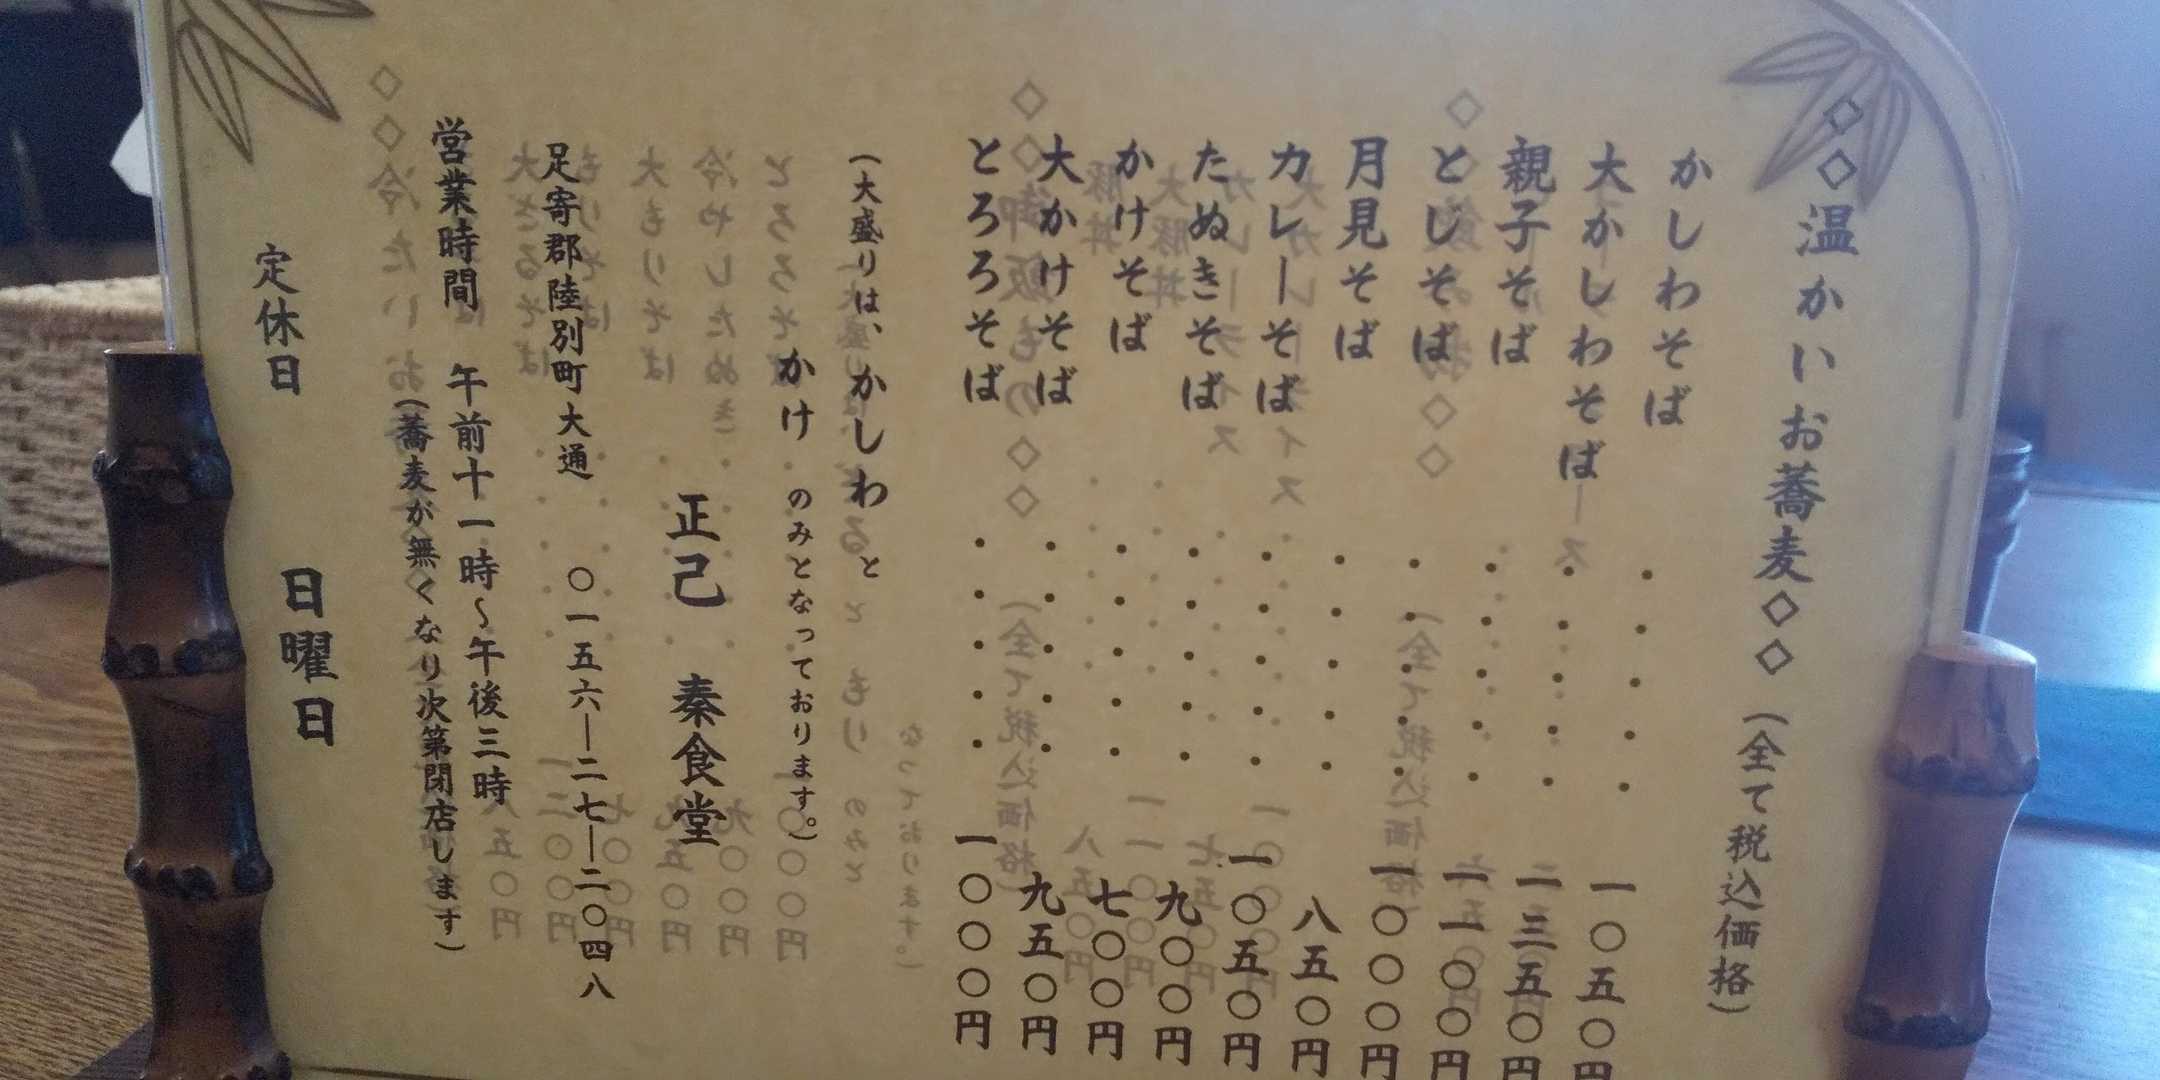 ◇◇温かいお蕎麦◇◇（全て税込価格）
かしわそば・・・・・一〇五〇円
大かしわそば・・・・・一三五〇円
親子そば・・・・・一一〇〇円
とじそば・・・・・一〇〇〇円
月見そば・・・・・八五〇円
カレーそば・・・・・一〇五〇円
たぬきそば・・・・・九〇〇円
かけそば・・・・・七〇〇円
大かけそば・・・・・九五〇円
とろろそば・・・・・一〇〇〇円
（大盛りは、かしわ と
かけ のみとなっております。）
正己 秦食堂
足寄郡陸別町大通 〇一五六―二七―二〇四八
営業時間 午前十一時～午後三時
（蕎麦が無くなり次第閉店します）
定休日 日曜日